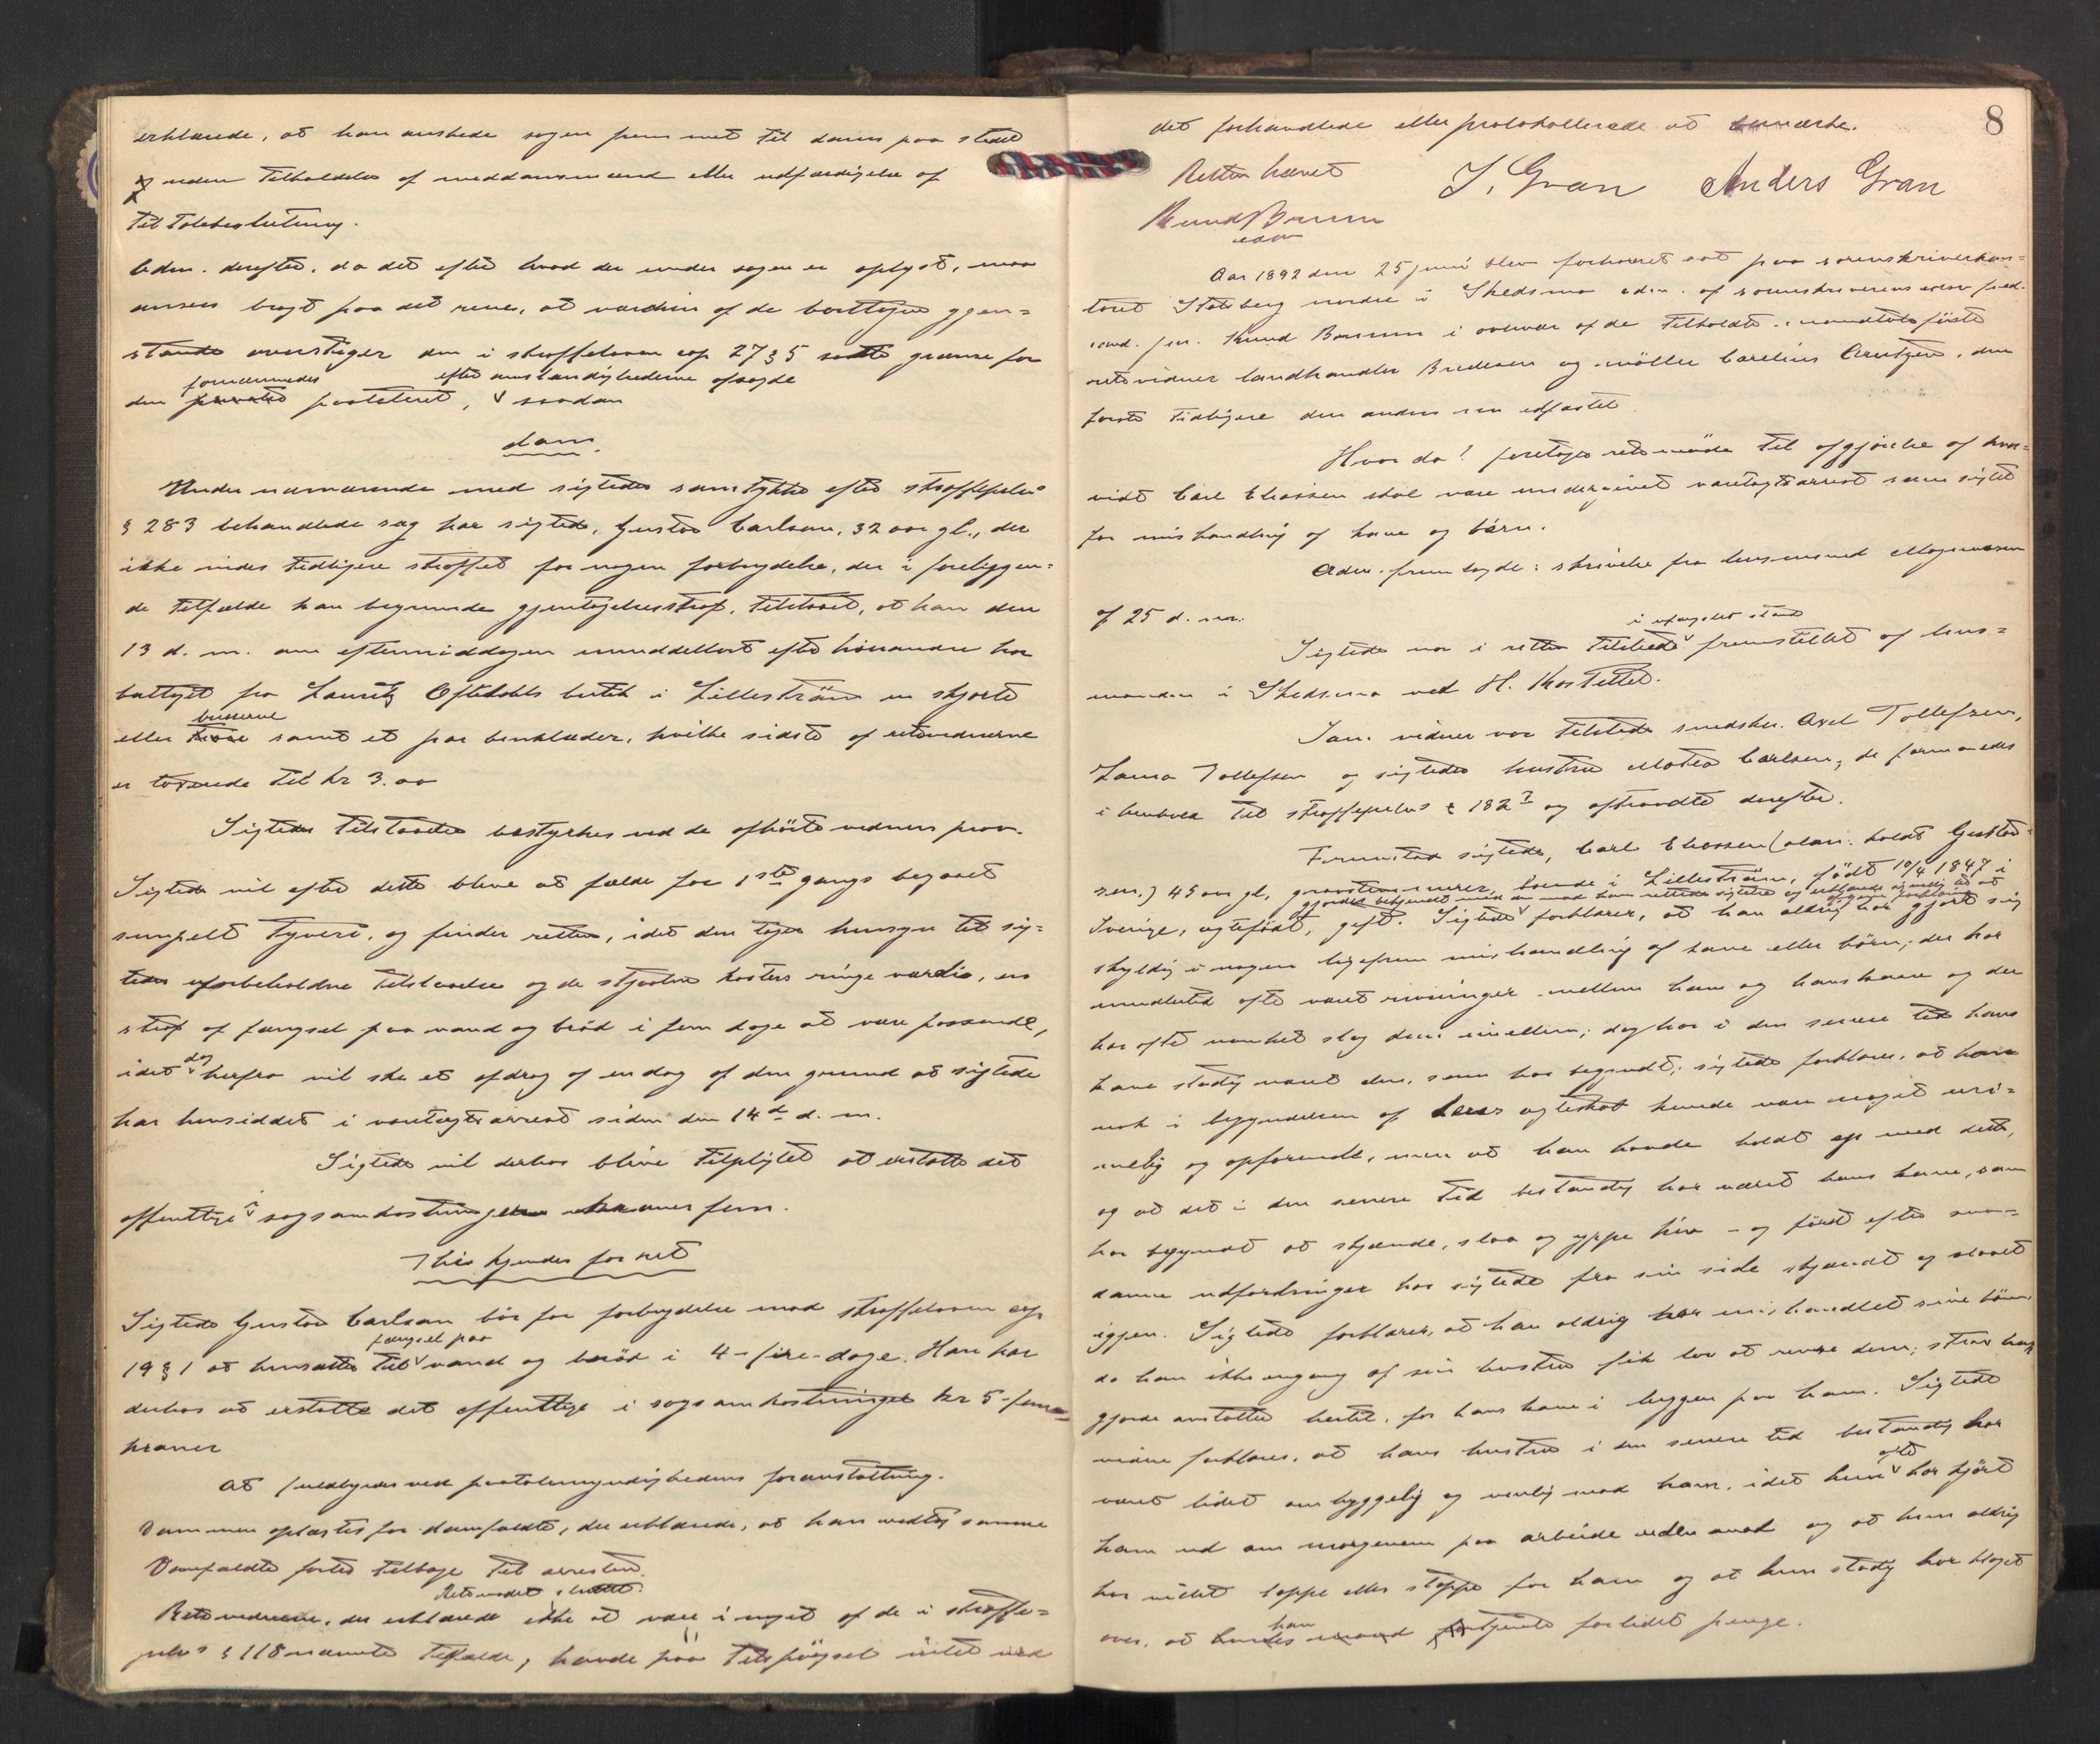 erklærede, at han ønskede sagen fremmet til doms paa stedet
og uden tilkaldelse af meddomsmænd eller udfærdigelse af
tiltalebeslutning.
Adm. derefter, da det efter hvad der under sagen er oplyst, maa
ansees bragt paa det rene, at værdien af de borttagne gjen=
stande overstiger den i straffeloven cap 27 § 5 satte grænse for
fornærmedes efter omstændighederne afsagde
den private paataleret, saadan
dom.
Under nærværende med sigtedes samtykke efter straffepcls
§ 283 behandlede sag har sigtede, Gustav Carlsen, 32 aar gl., der
ikke sindes tidligere straffet for nogen forbrydelse, der i foreliggen=
de tilfælde kan begrunde gjentagelsesstraf, tilstaaet, at han den
13 d. m. om eftermiddagen umiddelbart efter hinanden har
borttaget fra Lauritz Oftedahls butik i Lillestrøm en skjorte
eller busserul samt et par benklæder, hvilke sidste af retsvidnerne
er taxerede til kr 3.00
Sigtedes tilstaaelse bestyrkes ved de afhørte vidners prov.
Sigtede vil efter dette blive at fælde for 1ste gangs begaaet
simpelt tyveri, og finder retten, idet den tager hensyn til sig=
tedes uforbeholdne tilstaaelse og de stjaalne kosters ringe værdi, en
straf af fængsel paa vand og brød i fem dage at være passende,
idet dog herfra vil ske et afdrag af en dag af den grund at sigtede
har hensiddet i varetægtsarrest siden den 14de d. m.
Sigtede vil derhos blive tilpligtet at erstatte det
offentlige i sagsomkostninger kroner fem.
Thi kjendes for ret
Sigtede Gustav Carlsen bør for forbrydelse mod straffeloven cap
19 § 1 at hensættes til fængsel paa vand og brød i 4 - fire - dage. Han har
derhos at erstatte det offentlige i sagsomkostninger kr 5 - fem -
kroner
At fuldbyrdes ved paatalemyndighedens foranstaltning.
Dommen oplæstes for domfældte, der erklærede, at han vedtog samme
Domfældte førtes tilbage til arresten.
Retsmødet sluttet.
Retsvidnerne, der erklærede ikke at være i noget af de i straffe=
pcls § 118 nævnte tilfælde, havde paa tilspørgsel intet ved
8
det forhandlede eller protokollerede at bemærke.
Retten hævet
J. Gran Anders Gran
Knud Bomm
edsv
Aar 1892 den 25 juni blev forhørsret sat paa sorenskriverkon=
toret Stalsberg nordre i Skedsmo adm. af sorenskriverens edsv fuld.
cand. jur. Knud Bomm i overvær af de tilkaldte mandtalsførte
retsvidner landhandler Bredesen og møller Carelius Arntzen, den
første tidligere den anden nu edfæstet.
Hvor da! foretoges retsmøde til afgjørelse af hvor=
vidt Carl Eliassen skal være undergivet varetægtsarrest som sigtet
for mishandling af kone og børn.
Adm. fremlagde: skrivelse fra lensmand Mogensen
af 25 d. m.
Sigtede var i retten tilstede i ufængslet stand fremstillet af lens=
manden i Skedsmo ved H. Kostellet.
Som vidner var tilstede smedsken. Axel Tollefsen,
Laura Tollefsen og sigtedes hustru Mathea Carlsen; de formanedes
i henhold til straffepcls § 182 og aftraadte derefter.
Fremstod sigtede, Carl Eliassen (olim. kaldt Gustav=
sen) 45 aar gl, grovstenminerer, boende i Lillestrøm, født 10/4 1847 i
Sverige, ægtefødt, gift. Sigtede forklarer, at han aldrig har gjort sig
skyldig i nogen ligefrem mishandling af kone eller børn; der har
imidlertid ofte været rivninger mellem ham og hans kone og der
har ofte vanket slag dem imellem; dog har i den senere tid hans
kone stadig været den, som har begyndt; sigtede forklarer, at han
nok i begyndelsen af deres ægteskab kunde være noget uri=
melig og opfarende, men at han havde holdt op med dette,
og at det i den senere tid bestandig har været hans kone, som
har begyndt at skjænde, slaa og yppe kiv - og først efter saa=
danne udfordringer har sigtede fra sin side skjændt og slaaet
igjen. Sigtede forklarer, at han aldrig har mishandlet sine børn
da han ikke engang af sin hustru fik lov at revse dem; strax han
gjorde anstalter hertil, for hans kone i luggen paa ham. Sigtede
videre forklarer, at hans hustru i den senere tid bestandig har
været lidet omhyggelig og venlig mod ham, idet hun ofte har kjørt
ham ud om morgenen paa arbeide uden mad og at hun aldrig
har villet lappe eller stoppe for ham og at hun stadig har klaget
over, at han fortjente for lidet penge.